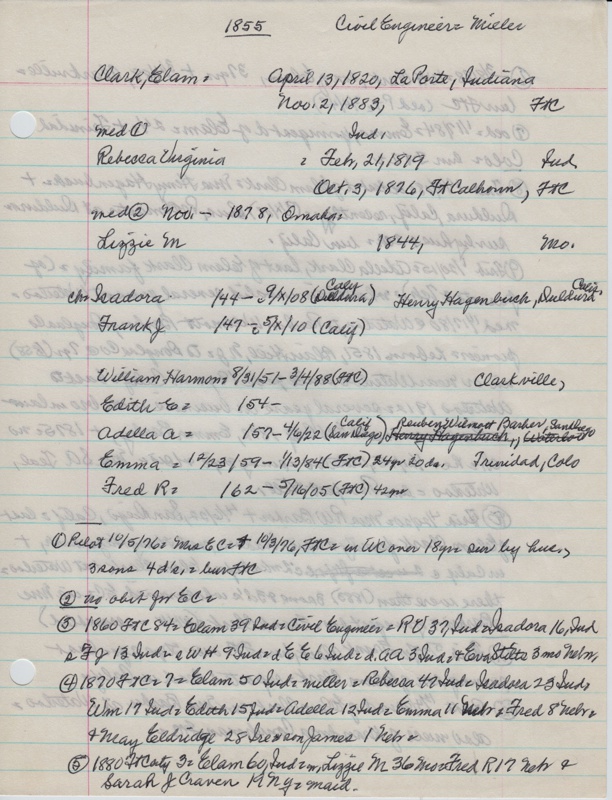 1855 Civil Engineer = Miller
Clark, Elam = April 13, 1820, LaPorte, Indiana
Nov. 2, 1883, FtC
med ① Ind.
Rebecca Virginia = Feb. 21, 1819 Ind
Oct. 3, 1876, Ft Calhoun, FtC
med ② Nov. - 1878, Omaha =
Lizzie M 1844, Mo.
ch = Isadora /44 - 9/x/08 (Calif Duldura) Henry Hagenbuch, Duldura Calif.
Frank J /47 - 5/x/10 (Calif)
William Harmon = 8/31/51 - 3/4/88 (FtC) Clarkville,
Edith E = 154 -
Adella A = 157 - 4/6/22 (Calif San Diego) Reuben Wilmott Barber, San Diego Henry Hagenbuch, Waterloo
Emma = 12/23/59 - 1/13/84 (FtC) 24 yr 20 ds. Trinidad, Colo
Fred R = 162 - 5/16/05 (FtC) 42 yr
① Pilot 10/5/76 = Mrs EC = + 10/3/76, FtC = in WC over 18 yr = sur by hus,
3 sons 4 d's, = bur FtC
② no obit for EC =
③ 1860 FtC 84 = Elam 39 Ind = Civil Engineer = RV 37, Ind = Isadora 16, Ind
s FJ 13 Ind = s WH 9 Ind = d EE 6 Ind = d. AA 3 Ind = & Eva 3 mo Nebr,
④ 1870 FtC = 7 = Elam 50 Ind = miller = Rebecca 47 Ind = Isadora 23 Ind =
Wm 17 Ind = Edith 15 Ind = Adella 12 Ind = Emma 11 Nebr = Fred 8 Nebr =
+ May Eldridge 28 James 1 Nebr =
⑤ 1880 Ft Coty 3 = Elam 60, Ind = m, Lizzie M 36 Mo = Fred R 17 Nebr &
Sarah J Craven NY = maid.